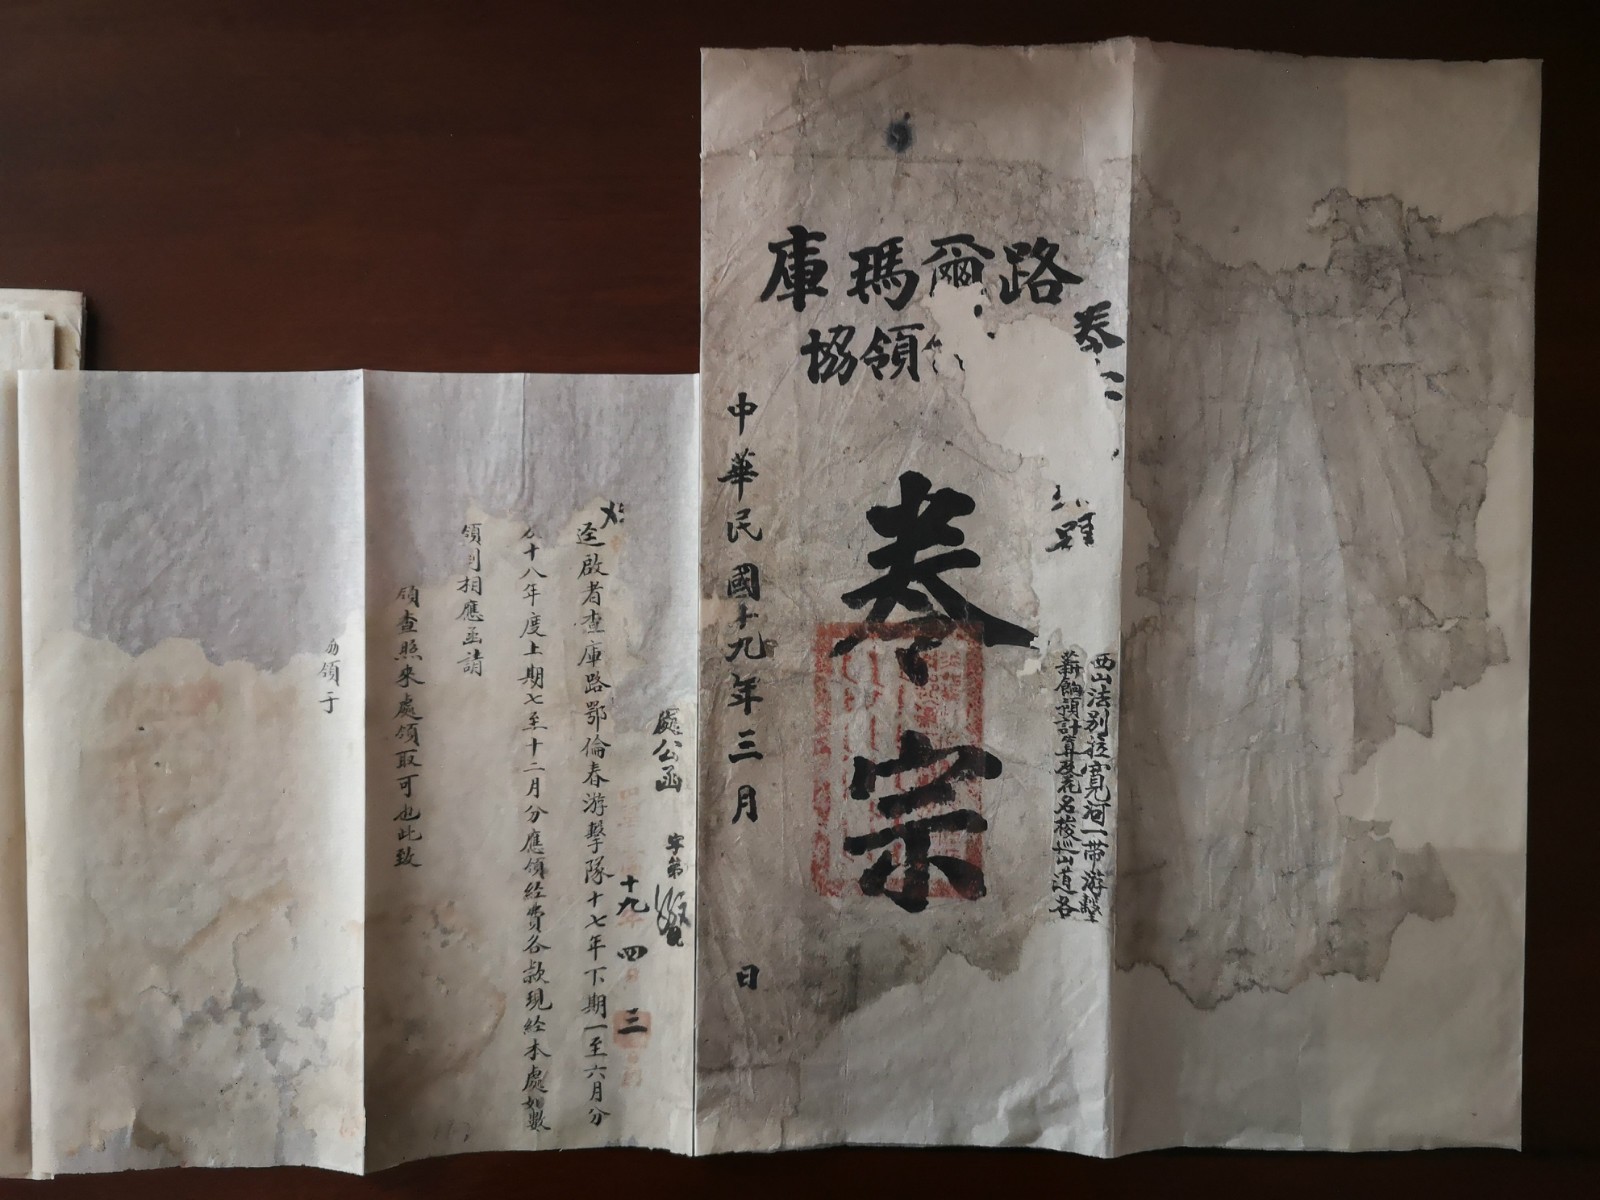 庫瑪爾路
協領
卷
西山法別拉寬河一帶游擊
薪餉預計算及花名 山道各
卷宗
中華民國十九年三月 日
處公函 字第 號
十九年四月三日
逕啟者查庫路鄂倫春游擊隊十七年下期一至六月分
十八年度上期七至十二月分應領經費各款現經本處如數
領到相應函請
領查照來處領取可也此致
領于